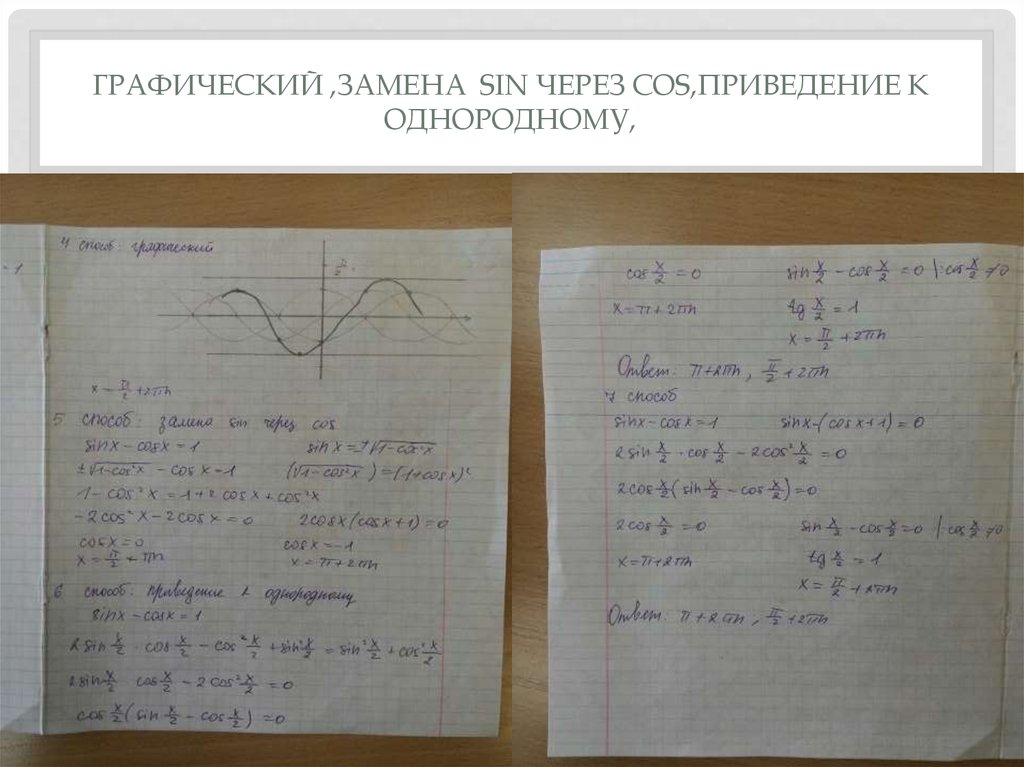 ГРАФИЧЕСКИЙ ,ЗАМЕНА SIN ЧЕРЕЗ COS,ПРИВЕДЕНИЕ К
ОДНОРОДНОМУ,
4 способ: графический
- 1
π/2
x = π/2 + 2πn
5 способ: замена sin через cos
sin x – cos x = 1 sin x = ±√1-cos²x
±√1-cos²x – cos x = 1 (√1-cos²x) = (1+cos x)²
1 – cos²x = 1 + 2 cos x + cos²x
– 2 cos²x – 2 cos x = 0 2 cos x (cos x + 1) = 0
cos x = 0 cos x = –1
x = π/2 + πn x = π + 2πn
6 способ: приведение к однородному
sin x – cos x = 1
2 sin x/2 · cos x/2 – cos² x/2 + sin² x/2 = sin² x/2 + cos² x/2
2 sin x/2 cos x/2 – 2 cos² x/2 = 0
cos x/2 ( sin x/2 – cos x/2 ) = 0
cos x/2 = 0 sin x/2 – cos x/2 = 0 |: cos x/2 ≠ 0
x = π + 2πn tg x/2 = 1
x = π/2 + 2πn
Ответ: π + 2πn , π/2 + 2πn
7 способ
sin x – cos x = 1 sin x – ( cos x + 1) = 0
2 sin x/2 · cos x/2 – 2 cos² x/2 = 0
2 cos x/2 ( sin x/2 – cos x/2 ) = 0
2 cos x/2 = 0 sin x/2 – cos x/2 = 0 |: cos x/2 ≠ 0
x = π + 2πn tg x/2 = 1
x = π/2 + 2πn
Ответ: π + 2πn , π/2 + 2πn